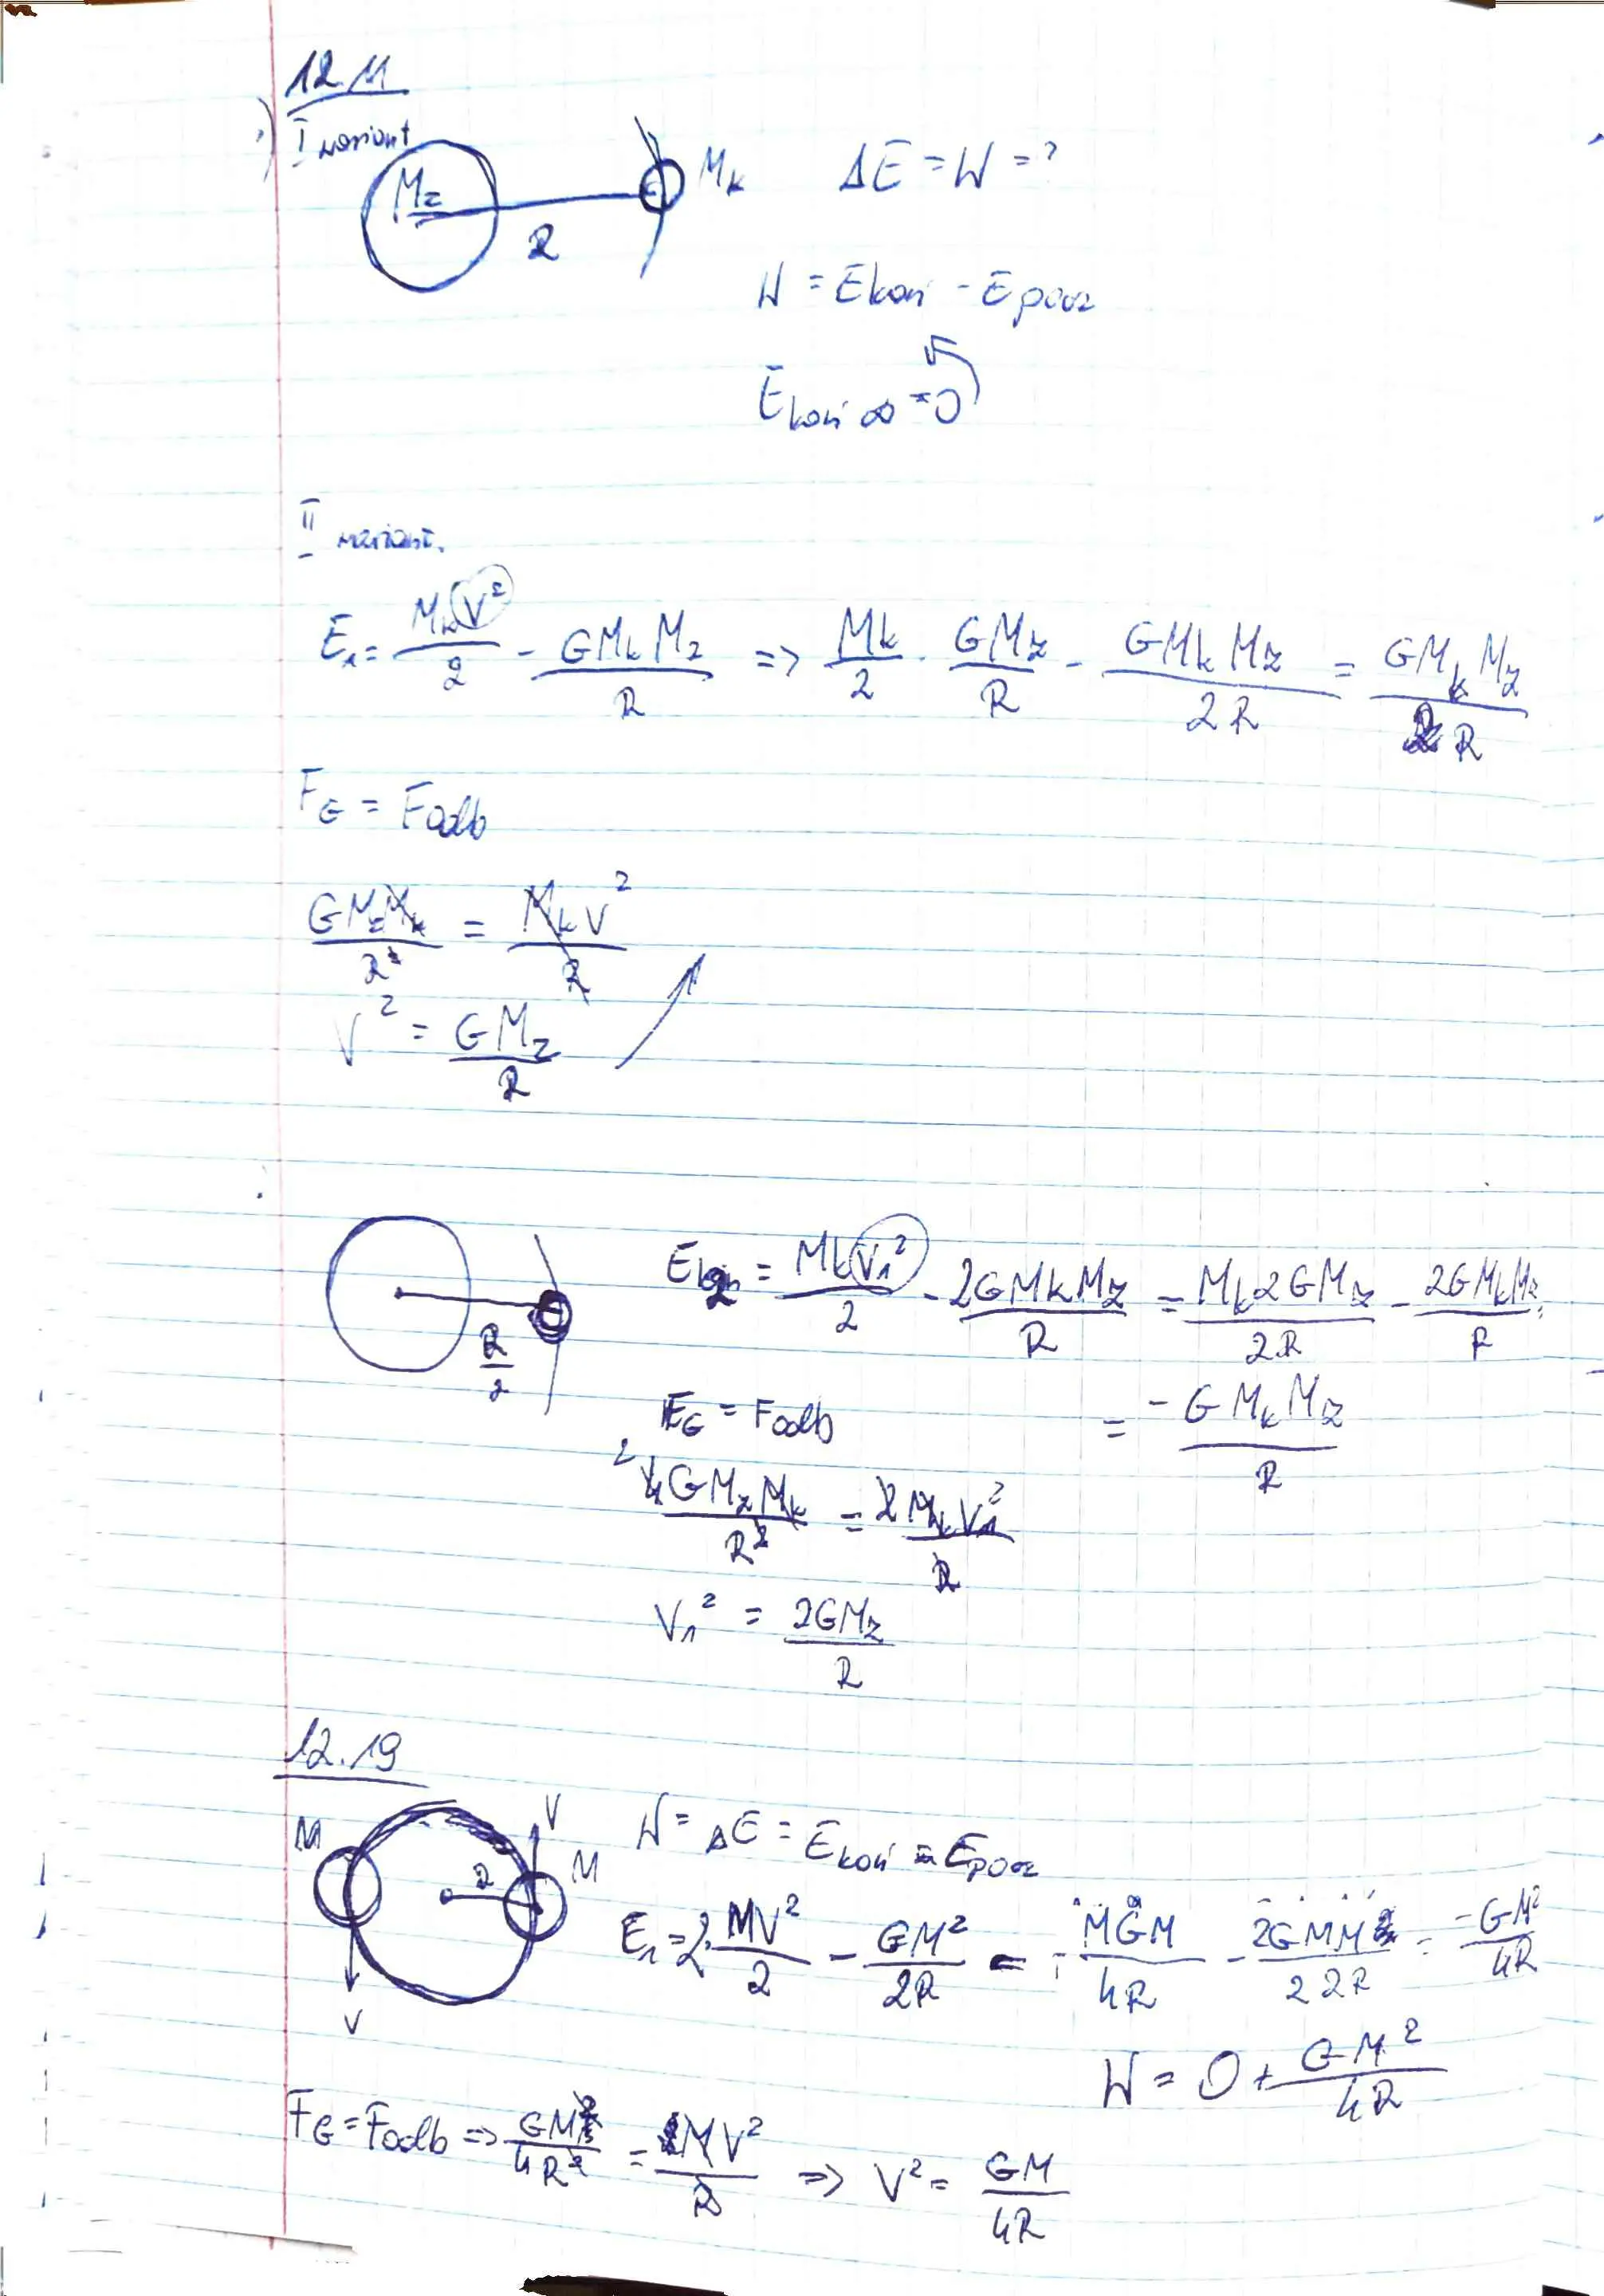 12.11
I wariant
Mz R Mk ΔE = W = ?
W = Ekoń - Epocz
Ekoń ∞ = 0
II wariant.
E₁ = MkV²/2 - GMkMz/R => Mk/2 · GMz/R - GMkMz/2R = GMkMz/2R
FG = Fodb
GMzMk/R² = MkV²/R
V² = GMz/R
R/2 E₂ = MkV₁²/2 - 2GMkMz/R = Mk2GMz/2R - 2GMkMz/R =
FG = Fodb = -GMkMz/R
4GMzMk/R² = 2MkV₁²/R
V₁² = 2GMz/R
12.19
M R V M V W = ΔE = Ekoń - Epocz
E₁ = 2·MV²/2 - GM²/2R = MGM/4R - 2GMM/2 2R = -GM²/4R
W = 0 + GM²/4R
FG = Fodb => GM²/4R² = MV²/R => V² = GM/4R